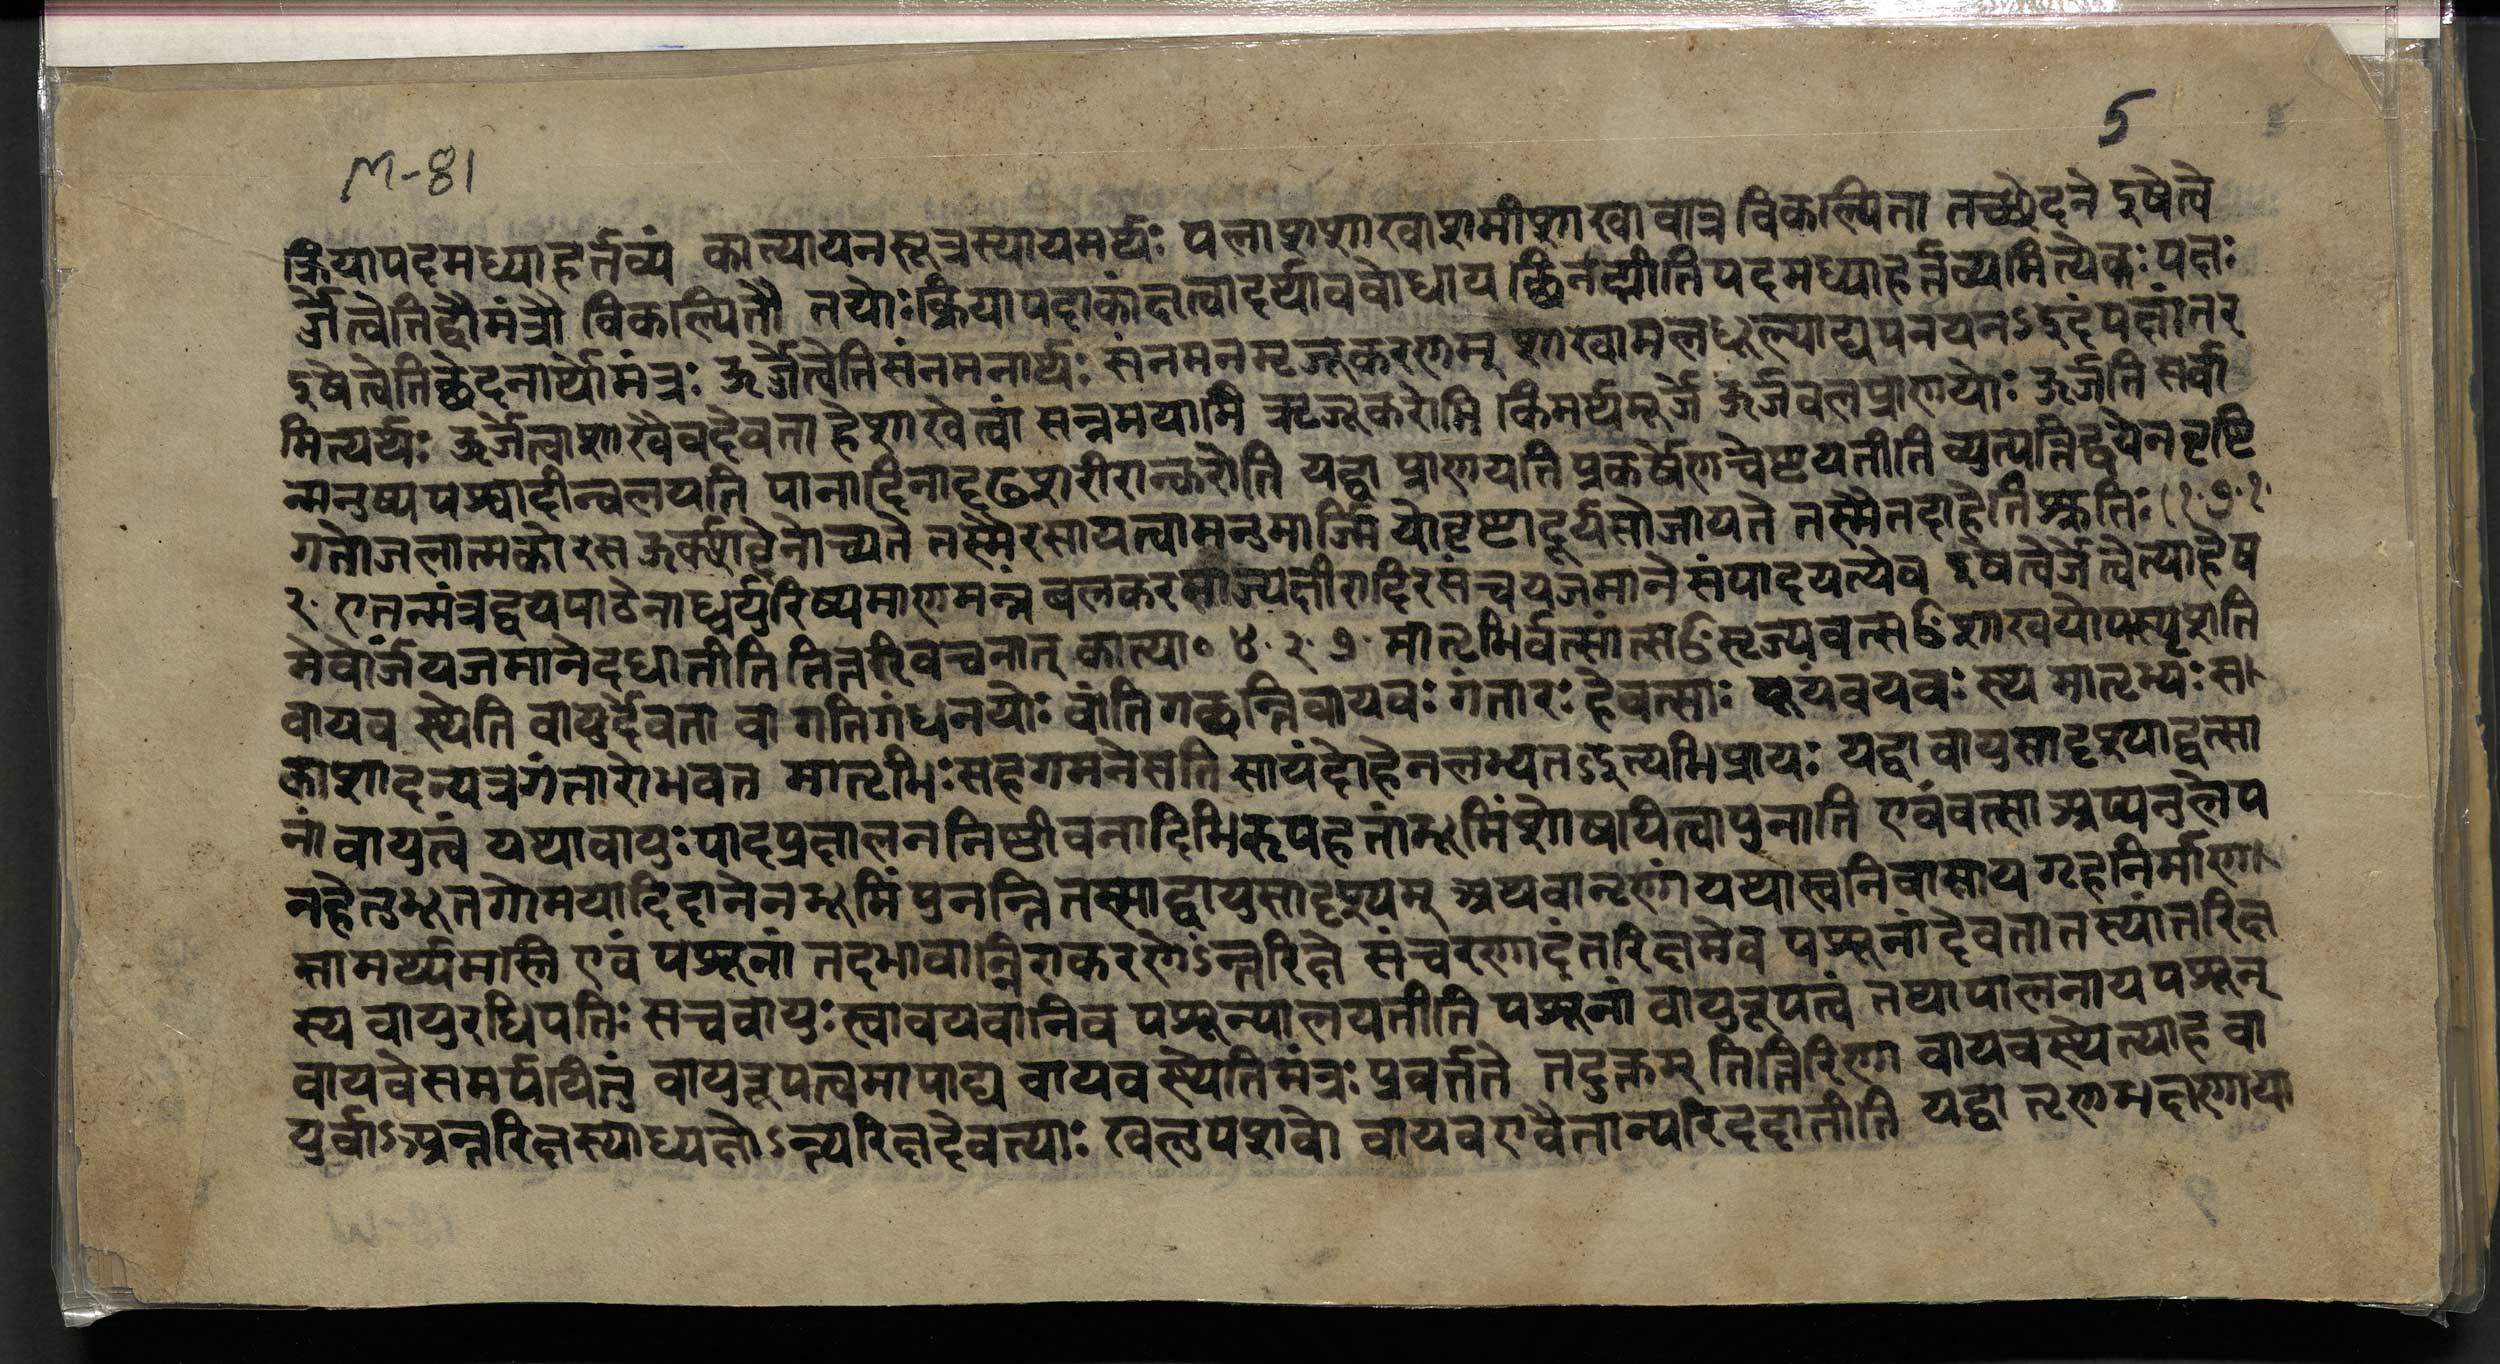 5
M-81
क्रियापदमध्याहर्तव्यं कात्यायनसूत्रस्यायमर्थः पलाशशाखाशमीशाखावात्र विकल्पिता तच्छेदने इषेत्वे
र्जेत्वेतिद्वौमंत्रौ विकल्पितौ तयोःक्रियापदाकांक्षत्वादर्थाववोधाय छिनद्मीतिपदमध्याहर्त्तव्यमित्येकःपक्षः
इषेत्वेतिछेदनार्थोमंत्रः ऊर्जेत्वेतिसंनमनार्थः संनमनमृजूकरणम् शाखामूलधूल्याद्यपनयनऽइदंपक्षांतर
मित्यर्थः ऊर्जेत्वाशाखैवदेवता हेशाखेत्वां सन्नमयामि ऋजूकरोमि किमर्थमूर्जे ऊर्जवलप्राणयोः ऊर्जति सर्वा
न्मनुष्यपश्वादीन्वलयति पानादिनादृढशरीरान्करोति यद्वा प्राणयति प्रकर्षेणचेष्टयतीति व्युत्पत्तिद्वयेनवृष्टि
गतोजलात्मकोरस ऊर्क्शब्देनोच्यते तस्मैरसायत्वामनुमार्ज्मि योवृष्टादूर्ग्रसोजायते तस्मैतदाहेतिश्रुतिः (१.७.१.
२. एतन्मंत्रद्वयपाठेनाध्वर्युरिष्यमाणमन्नं बलकरमाज्यक्षीरादिरसंचयजमाने संपादयत्येव इषेत्वेर्जेत्वेत्याहेष
मेवोर्जंयजमानेदधातीति तित्तिरिवचनात् कात्या० ४.२.७. मातृभिर्वत्सांत्सᳪसृज्यवत्सᳪशाखयोपस्पृशति
वायव स्थेति वायुर्देवता वा गतिगंधनयोः वांति गच्छन्तिवायवः गंतारः हेवत्साः यूयंवयवः स्थ मातृभ्यः स
काशादन्यत्रगंतारोभवत मातृभिःसहगमनेसति सायंदोहेनलभ्यतऽइत्यभिप्रायः यद्वा वायुसादृश्याद्वत्सा
नां वायुत्वं यथावायुःपादप्रक्षालननिष्ठीवनादिभिरुपहतांभूमिंशोषयित्वापुनाति एवंवत्सा अप्यनुलेप
नहेतुभूतगोमयादिदानेनभूमिं पुनन्ति तस्माद्वायुसादृश्यम् अथवानृणां यथास्वनिवासाय गृहनिर्माण
सामर्थ्यमस्ति एवं पशूनां तदभावान्निराकरणेऽन्तरिक्षे संचरणादंतरिक्षमेव पशूनां देवतातस्यांतरिक्ष
स्य वायुरधिपतिः सचवायुःस्वावयवानिव पशून्पालयतीति पशूनां वायुरूपत्वं तथापालनाय पशून्
वायवेसमर्पयितुं वायुरूपत्वमापाद्य वायव स्थेतिमंत्रः प्रवर्त्तते तदुक्तम् तित्तिरिणा वायवस्थेत्याह वा
युर्वाऽअन्तरिक्षस्याध्यक्षोऽन्तरिक्षदेवत्याः खलुपशवो वायवएवैतान्परिददातीति यद्वा तृणभक्षणाया